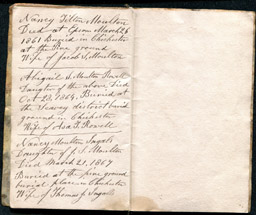 Nancy Tilton Moulton
Died at Epsom March 26
1861 Buried in Chichester
at the Pine ground
Wife of Jacob S. Moulton
Abigail S. Moulton Rowell
Daughter of the above Died
Oct 23, 1864, Buried at
the Leavey district burial
ground in Chichester
Wife of Asa T. Rowell
Nancy Moulton Ingals
Daughter of J. S. Moulton
Died March 21, 1867
Buried at the pine ground
burial place in Chichester
Wife of Thomas J. Ingals